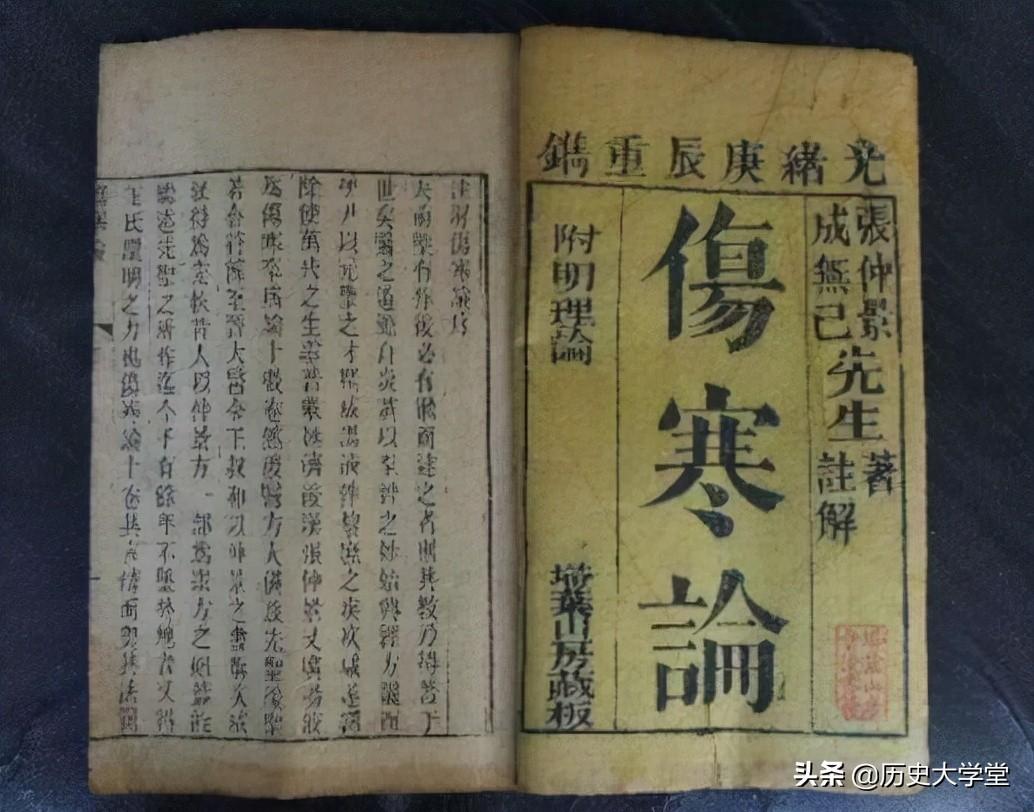 光緒庚辰重鐫
張仲景先生著
成無己先生註解
傷寒論
附明理論
埽葉山房藏板
註解傷寒論序
夫前聖有作後必有繼而述之者則其教乃得著于
世矣醫之道源自炎黃以至神之妙始興經方繼而
伊尹以元聖之才撰成湯液俾黎庶之疾疢咸遂蠲
除使萬代之生靈普蒙拯濟後漢張仲景又廣湯液
為傷寒卒病論十數卷然後醫方大備茲先聖後聖
若合符節至晉太醫令王叔和以仲景之書撰次成
敘得為完帙昔人以仲景方一部為眾方之祖蓋能
繼述先聖之所作迄今千有餘年不墜於地者又得
王氏闡明之力也傷寒論十卷其言精而奧其法簡
头条 @历史大学堂